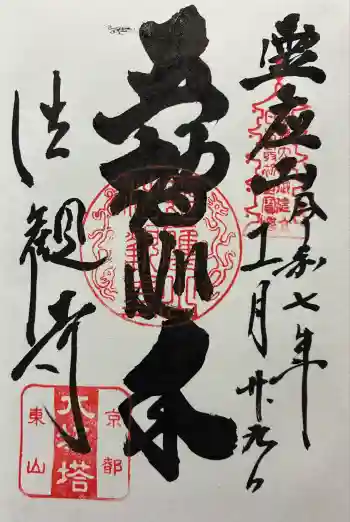 霊應山
令和七年
十一月廿九日
五智如来
法観寺
京都
八坂塔
東山